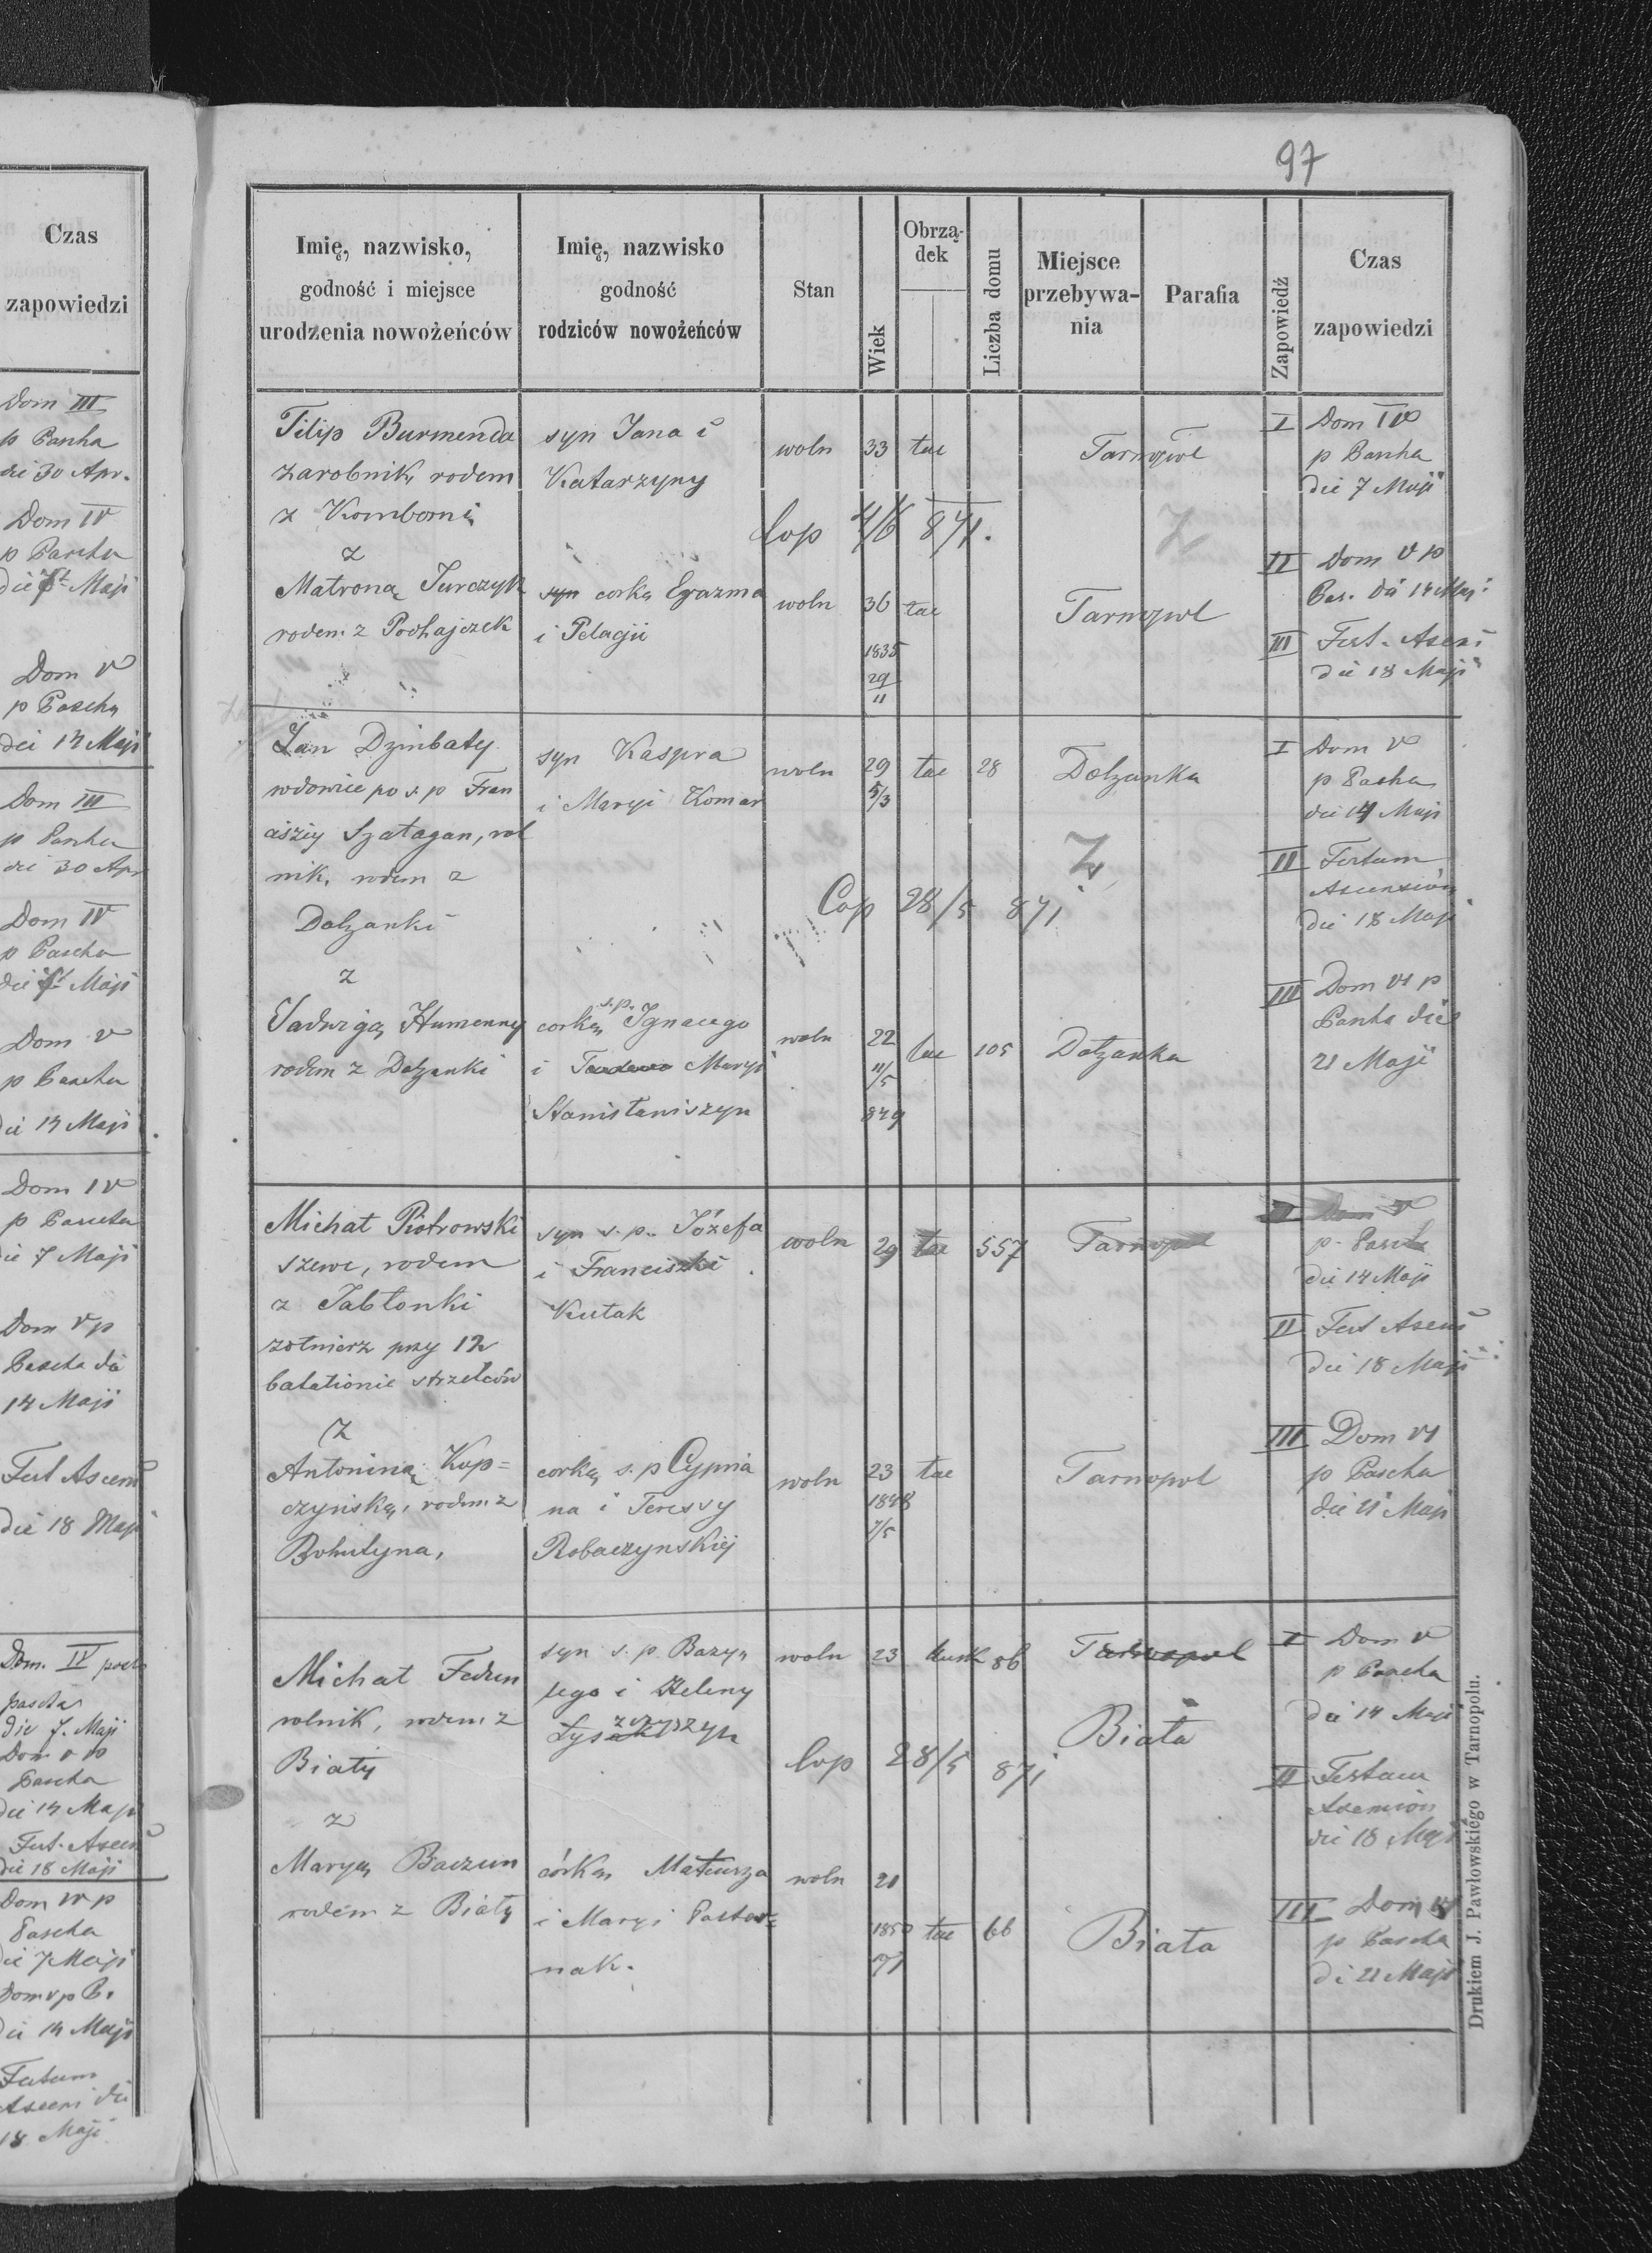 Czas
zapowiedzi
Dom III
p Pascha
die 30 Apr.
Dom IV
p Pascha
die Maji
Dom V
p Pascha
dei 14 Maji
Dom III
p Pascha
die 30 Apr
Dom IV
p Pascha
die Maji
Dom V
p Pascha
die 14 Maji
Dom IV
p Pascha
die 7 Maji
Dom V p
Pascha die
14 Maji
Fest Ascens
die 18 Maji
Dom. IV post
pascha
die 7. Maji
Dom V p
Pascha
die 14 Maji
Fest. Ascens
die 18 Maji
Dom IV p
Pascha
die 7 Maji
Dom V p P.
die 14 Maji
Festum
Ascens die
18 Maji
97
Imię, nazwisko,
godność i miejsce
urodzenia nowożeńców
Imię, nazwisko
godność
rodziców nowożeńców
Stan
Wiek
Obrzą-
dek
Liczba domu
Miejsce
przebywa-
nia
Parafia
Zapowiedź
Czas
zapowiedzi
Filip Burmenda
zarobnik, rodem
z Komborni
z
Matroną Jurczyk
rodem z Podhajczek
syn Jana i
Katarzyny
syn corką Erazma
i Pelagii
woln 33 lac Tarnopol
Cop 4/6 871.
Z
woln 36 lac Tarnopol
1835
29
11
I Dom IV
p Pascha
die 7 Maji
II Dom V p
Pas. die 14 Maji
III Fest. Ascens
die 18 Maji
Jan Dzinbaty
wdowiec po s. p Fran
ciszcy Szatagan, rol
nik, rodem z
Dolzanki
z
Jadwigą Humenny
rodem z Dolzanki
syn Kaspra
i Maryi Komar
s.p.
corką Ignacego
i Maryi
Stanisławiszyn
woln 29 lac 28 Dolzanka
5/3
Z
Cop 28/5 871
woln 22 lac 105 Dolzanka
11/5
849
I Dom V
p Pascha
die 14 Maji
II Festum
Ascension
die 18 Maji
III Dom VI p
Pascha die
21 Maji
Michał Piotrowski
szewc, rodem
z Jabłonki
żołnierz przy 12
batalionie strzelców
z
Antoniną Kop=
czyńską, rodem z
Bohutyna,
syn s. p. Józefa
i Franciszki
Kutak
corką s. p Cypria
na i Teressy
Robaczynskiej
woln 29 lac 557 Tarnopol
woln 23 lac Tarnopol
1848
7/5
I Dom V
p. Pascha
die 14 Maji
II Fest Ascens
die 18 Maji
III Dom VI
p Pascha
die 21 Maji
Michał Fedun
rolnik, rodem z
Biały
z
Maryą Baczun
rodem z Biały
syn s. p. Bazy
lego i Heleny
córką Mateusza
i Maryi Paster
nak.
woln 23 86 Tarnopol
Biała
Cop 28/5 871
woln 21
1850 lac 66 Biała
I Dom V
p Pascha
die 14 Maji
II Festum
Ascension
die 18 Maji
III Dom VI
p Pascha
di 21 Maji
Drukiem J. Pawłowskiego w Tarnopolu.